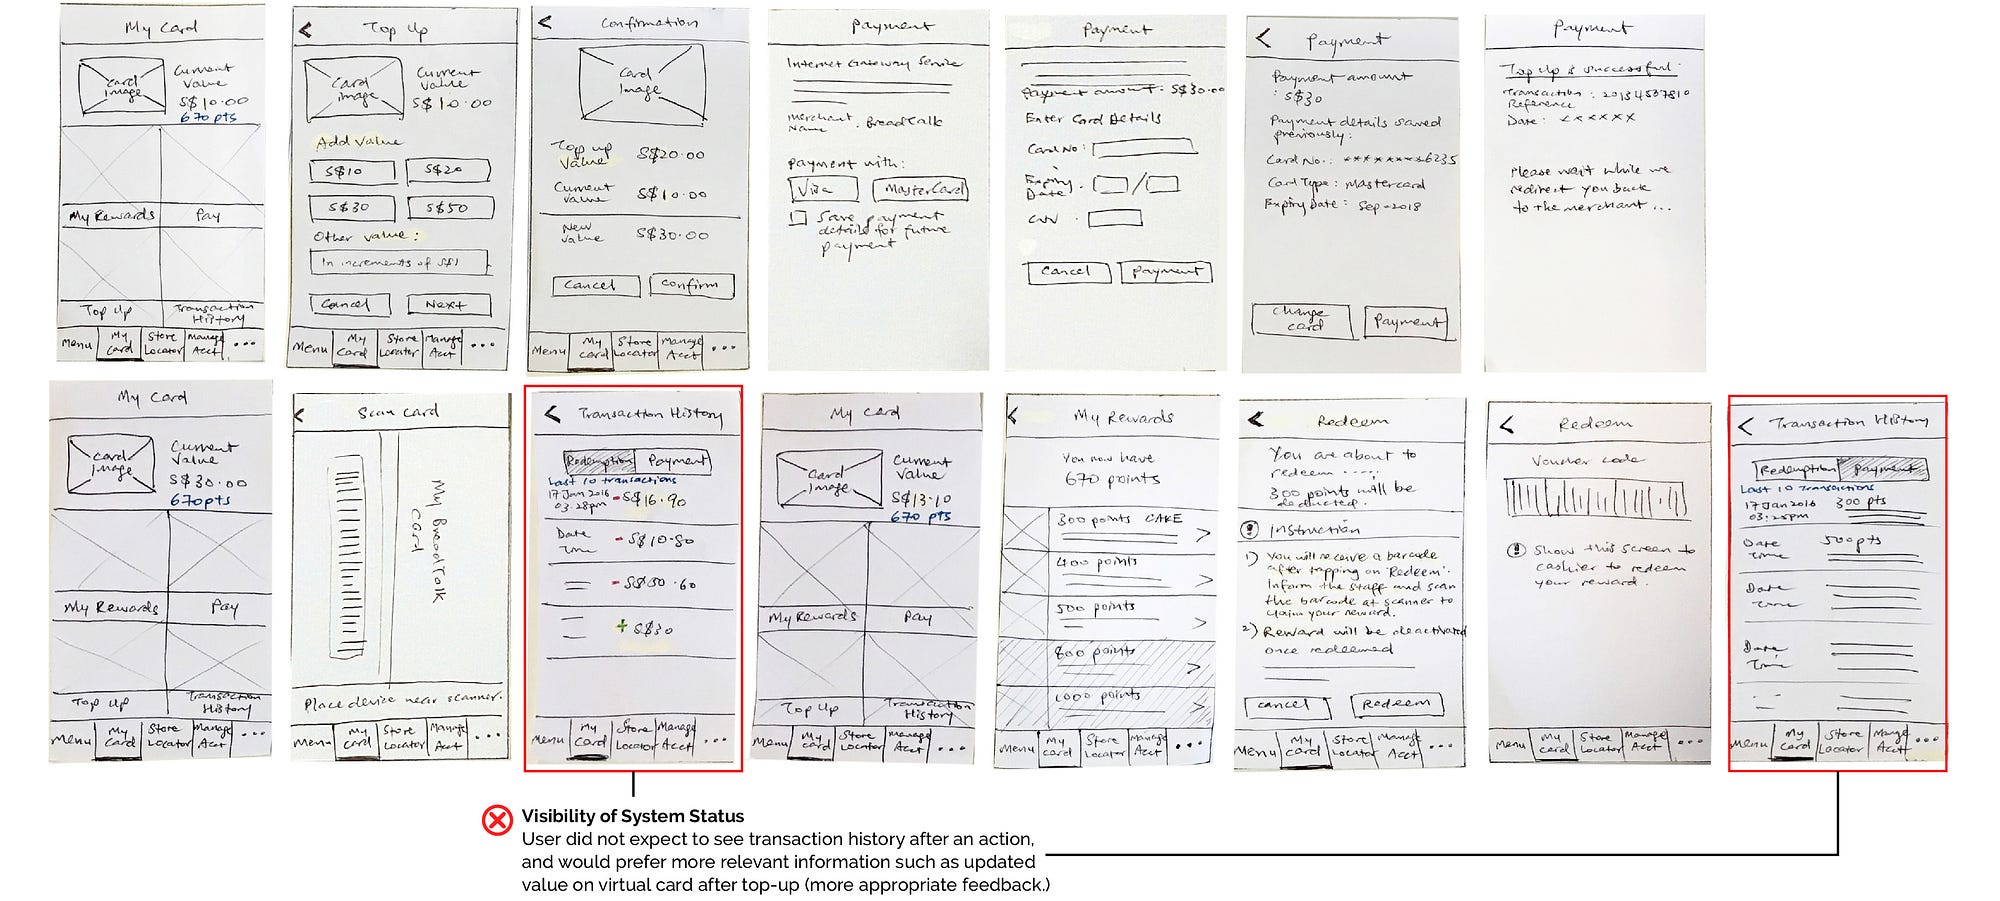 My Card
Card
Image
Current
Value
S$10.00
670 pts
My Rewards
Pay
Top Up
Transaction
History
Menu
My
Card
Store
Locator
Manage
Acct
...
<
Top Up
Card
Image
Current
Value
S$10.00
Add Value
S$10
S$20
S$30
S$50
Other value:
In increments of S$1
Cancel
Next
Menu
My
Card
Store
Locator
Manage
Acct
...
<
Confirmation
Card
Image
Top up
Value
S$20.00
Current
Value
S$10.00
New
Value
S$30.00
Cancel
Confirm
Menu
My
Card
Store
Locator
Manage
Acct
...
Payment
Internet Gateway Service
Merchant
Name : BreadTalk
Payment with:
Visa
MasterCard
Save payment
details for future
payment
Payment
Payment amount: S$30.00
Enter Card Details
Card No:
Expiry
Date :
/
CVV :
Cancel
Payment
<
Payment
Payment amount
: S$30
Payment details saved
previously:
Card No.: ********6235
Card Type: Mastercard
Expiry Date: Sep-2018
Change
card
Payment
Payment
Top Up is successful.
Transaction : 20134537810
Reference
Date: ******
Please wait while we
redirect you back
to the merchant ...
My Card
Card
Image
Current
Value
S$30.00
670pts
My Rewards
Pay
Top Up
Transaction
History
Menu
My
Card
Store
Locator
Manage
Acct
...
<
Scan Card
My BreadTalk
Card
Place device near scanner.
Menu
My
Card
Store
Locator
Manage
Acct
...
<
Transaction History
Redemption
Payment
Last 10 transactions
17 Jan 2016
03.28pm
-S$16.90
Date
Time
-S$10.80
+ S$30
Menu
My
Card
Store
Locator
Manage
Acct
...
My Card
Card
Image
Current
Value
S$13.10
670 pts
My Rewards
Pay
Top Up
Transaction
History
Menu
My
Card
Store
Locator
Manage
Acct
...
<
My Rewards
You now have
670 points
300 points CAKE
>
400 points
>
500 points
>
800 points
>
1000 points
>
Menu
My
Card
Store
Locator
Manage
Acct
...
<
Redeem
You are about to
redeem .....
300 points will be
deducted.
! Instruction
1) You will receive a barcode
after tapping on 'Redeem'.
Inform the staff and scan
the barcode at scanner to
claim your reward.
2) Reward will be deactivated
once redeemed
Cancel
Redeem
Menu
My
Card
Store
Locator
Manage
Acct
...
<
Redeem
Voucher code
! Show this screen to
cashier to redeem
your reward.
Menu
My
Card
Store
Locator
Manage
Acct
...
<
Transaction History
Redemption
Payment
Last 10 Transactions
17 Jan 2016
03.28pm
300 pts
Date
Time
500pts
Date
Time
Date
Time
Menu
My
Card
Store
Locator
Mange
Acct
...
Visibility of System Status
User did not expect to see transaction history after an action,
and would prefer more relevant information such as updated
value on virtual card after top-up (more appropriate feedback.)